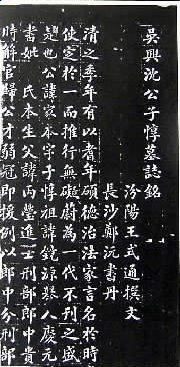 吳興沈公子惇墓誌銘
汾陽王式通撰文
長沙鄭沅書丹
清之季年有以耆年碩德治法家言名於時
使定於一而推行無礙蔚為一代不刊之盛
是也公諱家本字子惇祖諱鏡源舉人慶元
書妣氏本生父諱丙瑩進士刑部郎中貴
時解官歸公才弱冠即援例以郎中分刑部